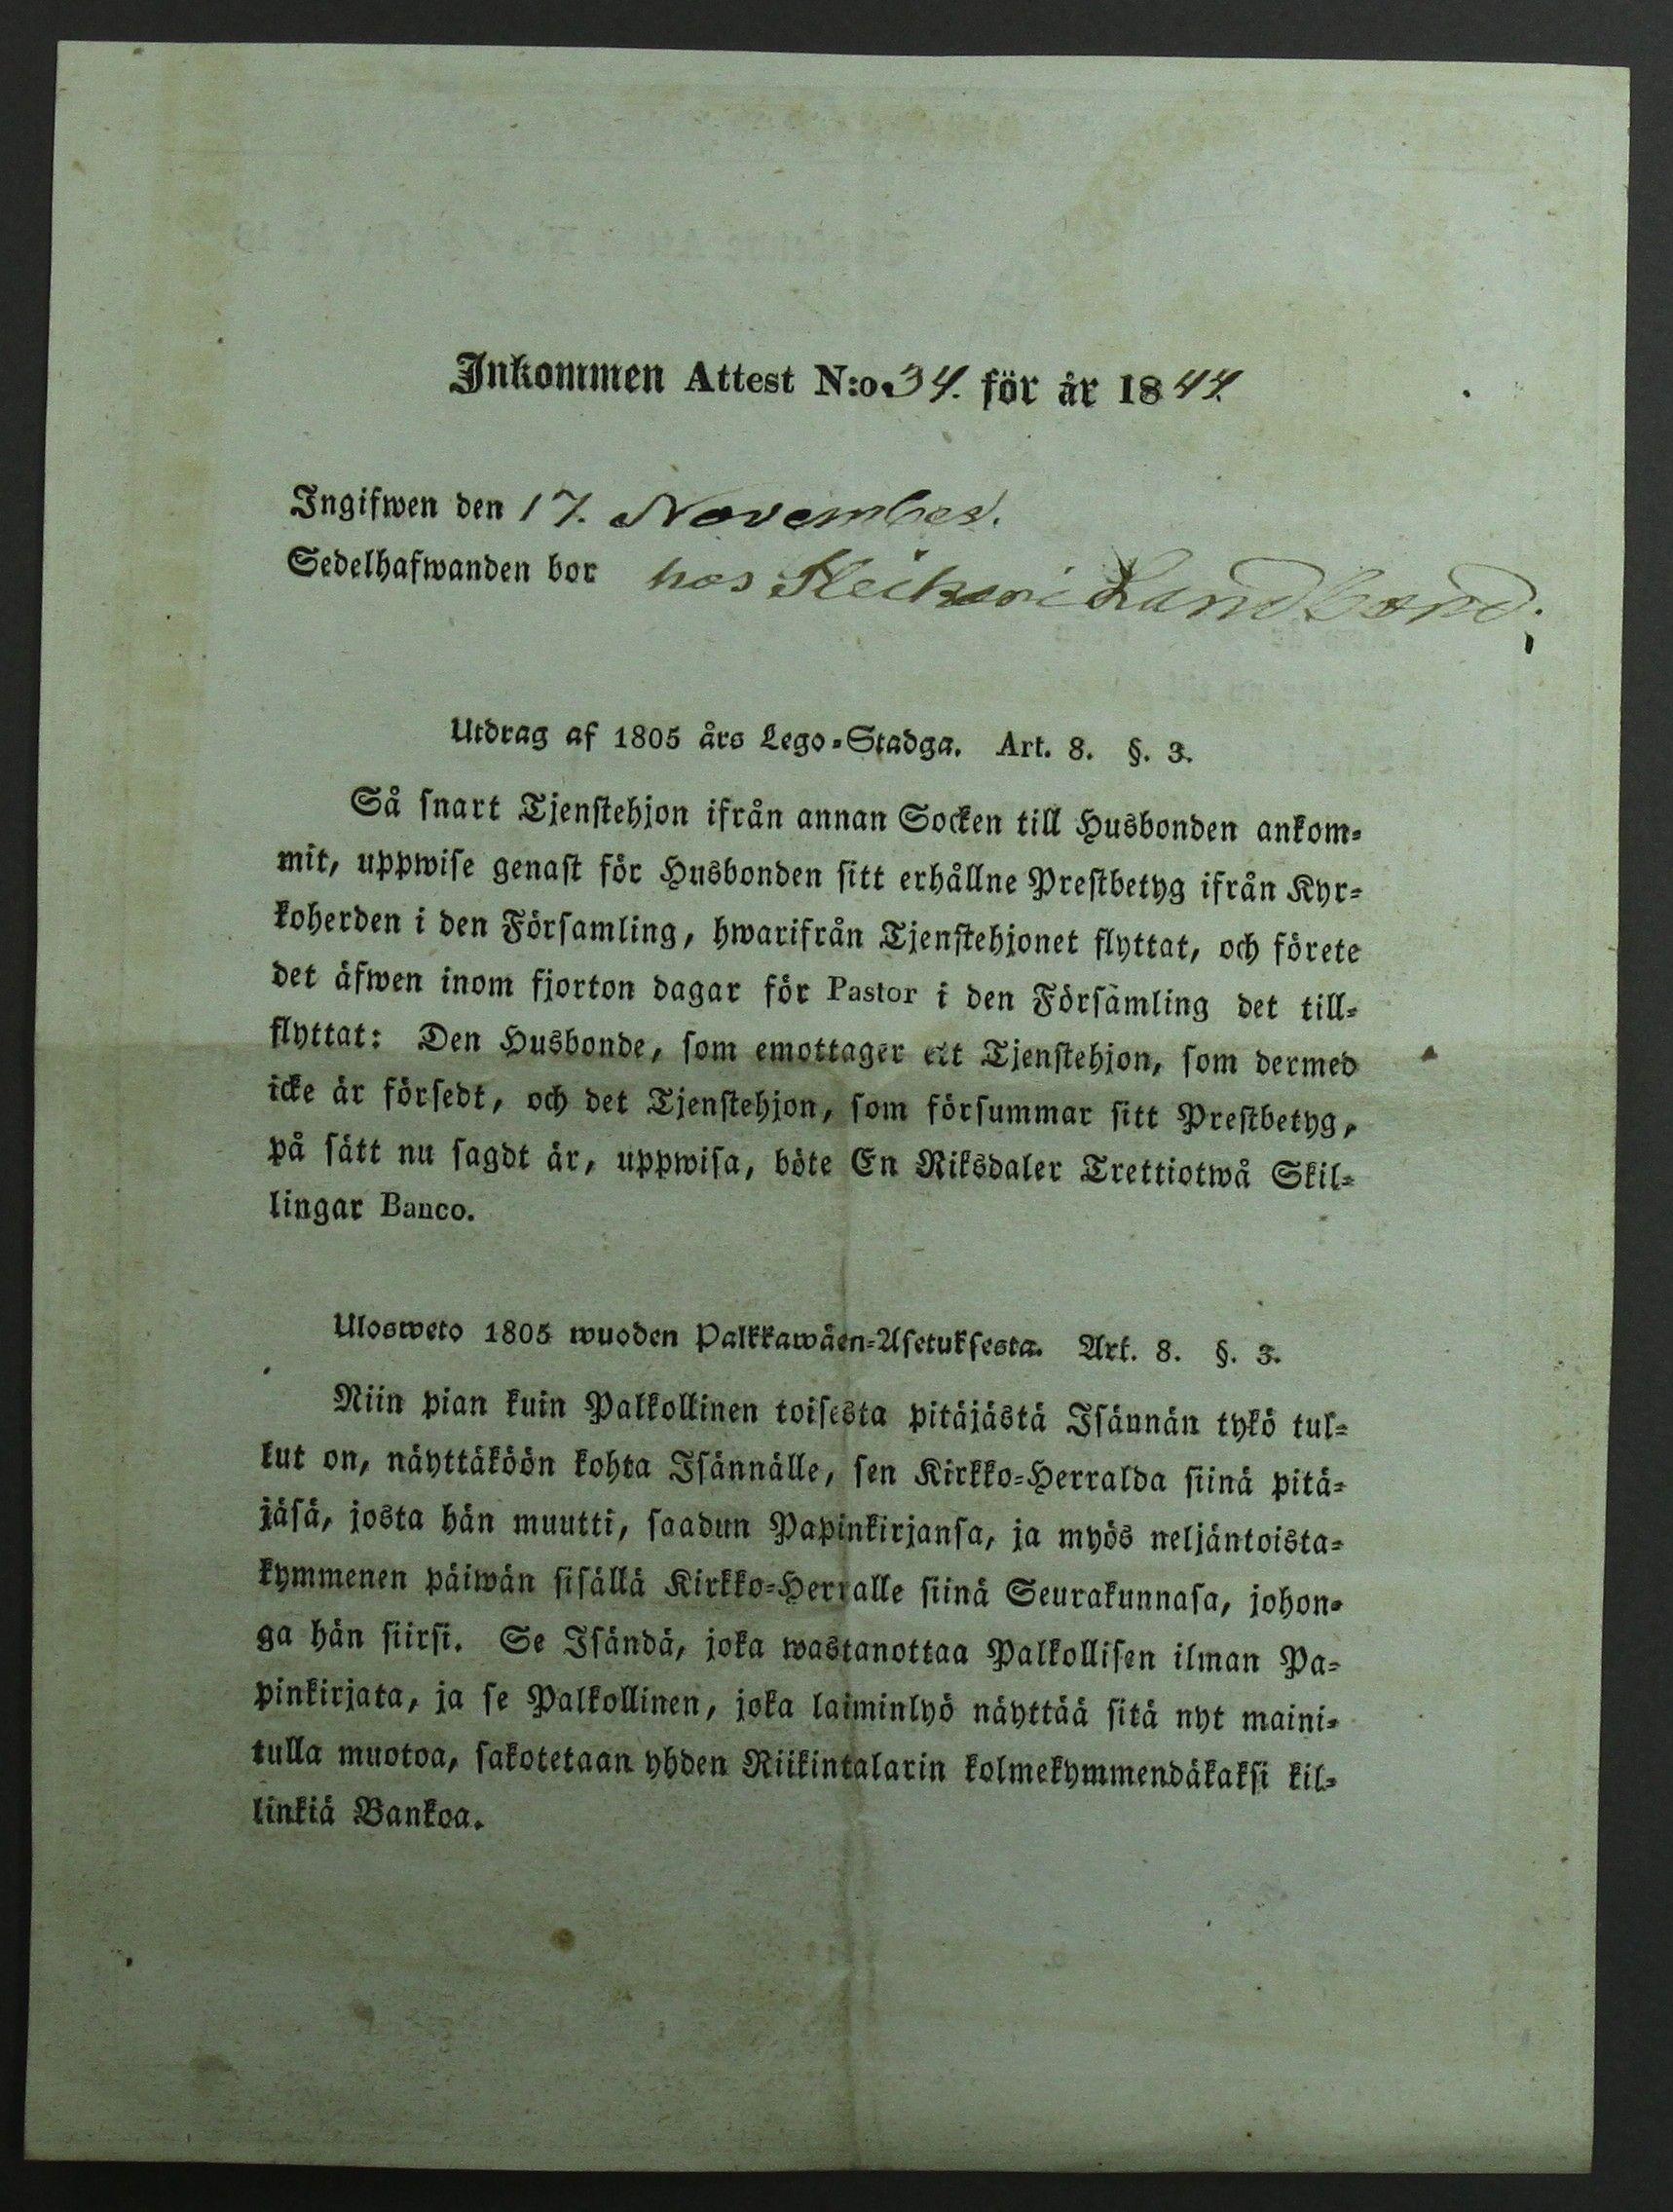 Inkommen Attest N:o 34. för år 1844.
Ingifwen den 17. November.
Sedelhafwanden bor hos Landbond.
Utdrag af 1805 års Lego-Stadga. Art. 8. §. 3.
Så snart Tjenstehjon ifrån annan Socken till Husbonden ankom-
mit, uppwise genast för Husbonden sitt erhållne Prestbetyg ifrån Kyr-
koherden i den Församling, hwarifrån Tjenstehjonet flyttat, och förete
det äfwen inom fjorton dagar för Pastor i den Församling det till-
flyttat: Den Husbonde, som emottager ett Tjenstehjon, som dermed
icke är försedt, och det Tjenstehjon, som försummar sitt Prestbetyg,
på sätt nu sagdt är, uppwisa, böte En Riksdaler Trettiotwå Skil-
lingar Banco.
Ulosweto 1805 wuoden Palkkawäen-Asetuksesta. Art. 8. §. 3.
Niin pian kuin Palkollinen toisesta pitäjästä Isännän tykö tul-
lut on, näyttäköön kohta Isännälle, sen Kirkko-Herralda siinä pitä-
jäsä, josta hän muutti, saadun Papinkirjansa, ja myös neljäntoista-
kymmenen päiwän sisällä Kirkko-Herralle siinä Seurakunnasa, johon-
ga hän siirsi. Se Isändä, joka wastanottaa Palkollisen ilman Pa-
pinkirjata, ja se Palkollinen, joka laiminlyö näyttää sitä nyt maini-
tulla muotoa, sakotetaan yhden Riikintalarin kolmekymmendäkaksi kil-
linkiä Bankoa.